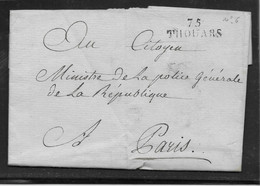 75
THOUARS
Au Citoyen
Ministre de la police générale
de La République
A Paris.